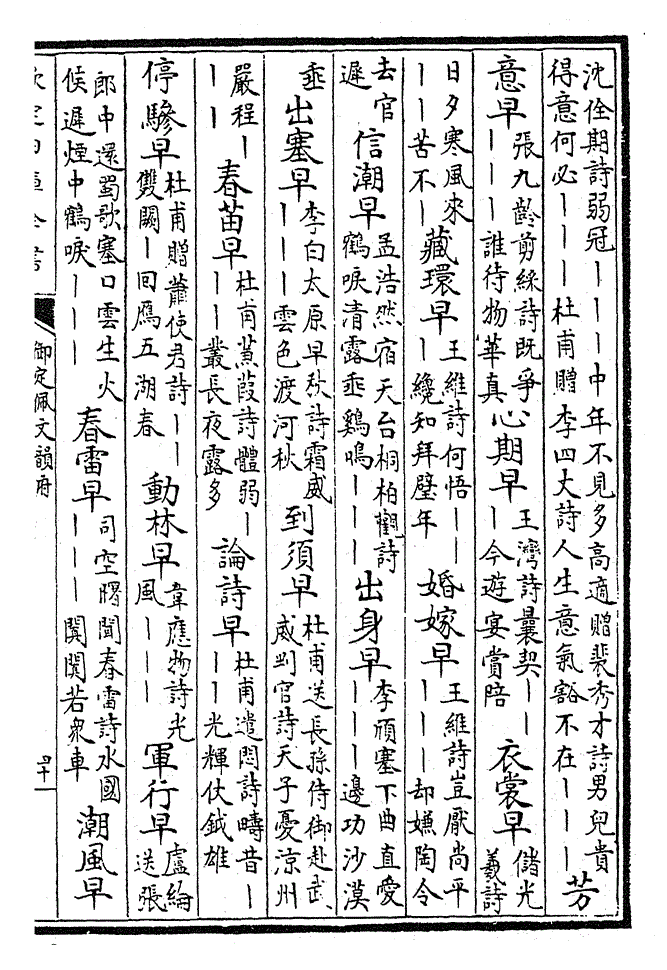 沈佺期詩弱冠｜｜｜中年不見多高適贈裴秀才詩男兒貴
得意何必｜｜｜杜甫贈李四丈詩人生意氣豁不在｜｜｜
芳
意早
張九齡剪綵詩既爭
｜｜｜誰待物華真
心期早
王灣詩曩契｜｜
｜今遊宴賞陪
衣裳早
儲光
羲詩
日夕寒風來
｜｜｜苦不｜
藏環早
王維詩何悟｜｜
｜纔知拜璧年
婚嫁早
王維詩豈厭尚平
｜｜｜却嫌陶令
去官
遲
信潮早
孟浩然宿天台桐柏觀詩
鶴唳清露垂鷄鳴｜｜｜
出身早
李頎塞下曲直愛
｜｜｜邊功沙漠
垂
出塞早
李白太原早秋詩霜威
｜｜｜雲色渡河秋
到須早
杜甫送長孫侍御赴武
威判官詩天子憂涼州
嚴程｜
｜｜
春苗早
杜甫蒹葭詩體弱｜
｜｜叢長夜露多
論詩早
杜甫遣悶詩疇昔｜
｜｜光輝仗鉞雄
停驂早
杜甫贈蕭使君詩｜｜
雙闕｜回鴈五湖春
動林早
韋應物詩光
風｜｜｜
軍行早
盧綸
送張
郎中還蜀歌塞口雲生火
候遲煙中鶴唳｜｜｜
春雷早
司空曙聞春雷詩水國
｜｜｜闐闐若衆車
潮風早
欽定四庫全書
御定佩文韻府
四十